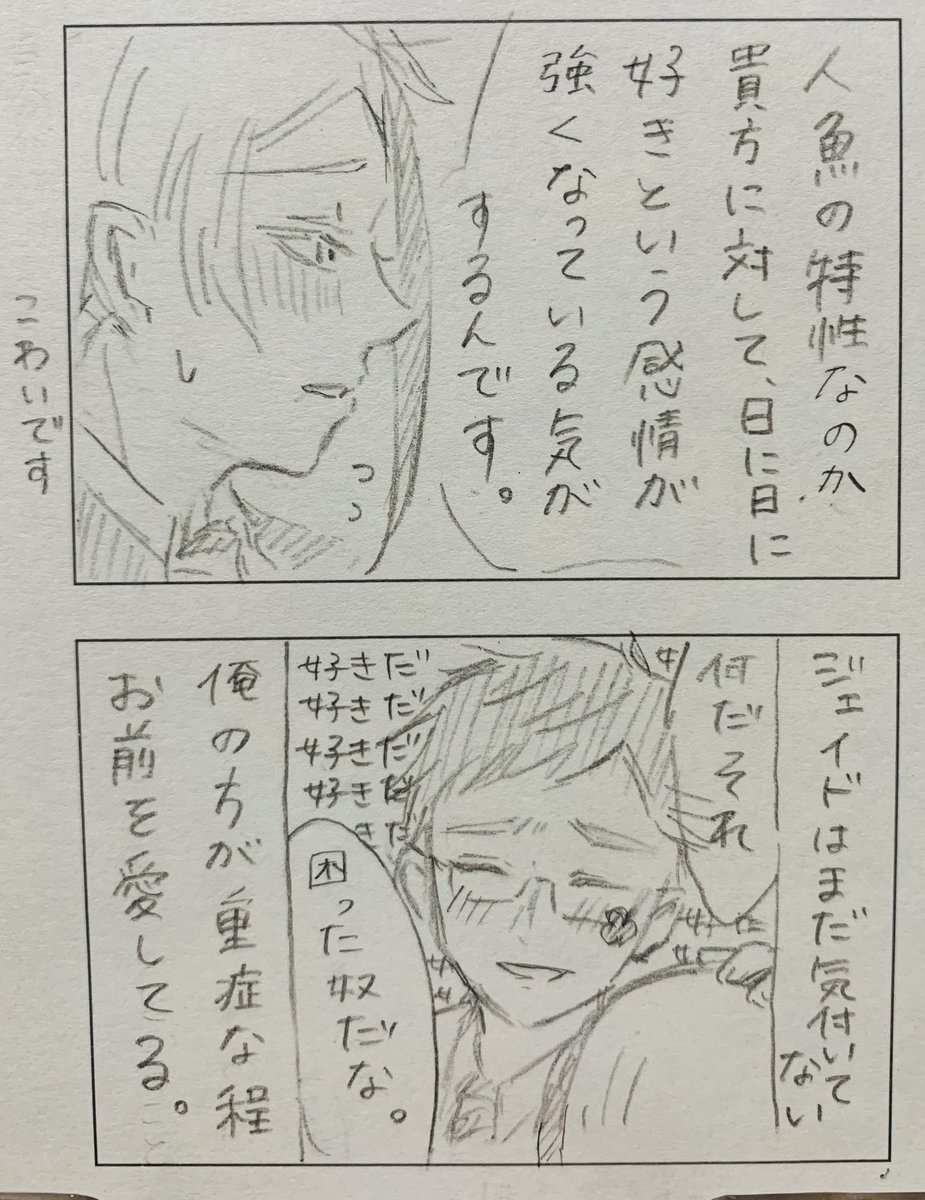 人魚の特性なのか
貴方に対して、日に日に
好きという感情が
強くなっている気が
するんです。
こわいです
ジェイドはまだ気付いて
ない
何だそれ
好きだ
好きだ
好きだ
好きだ
きだ
困った奴だな。
俺の方が重症な程
お前を愛してる。